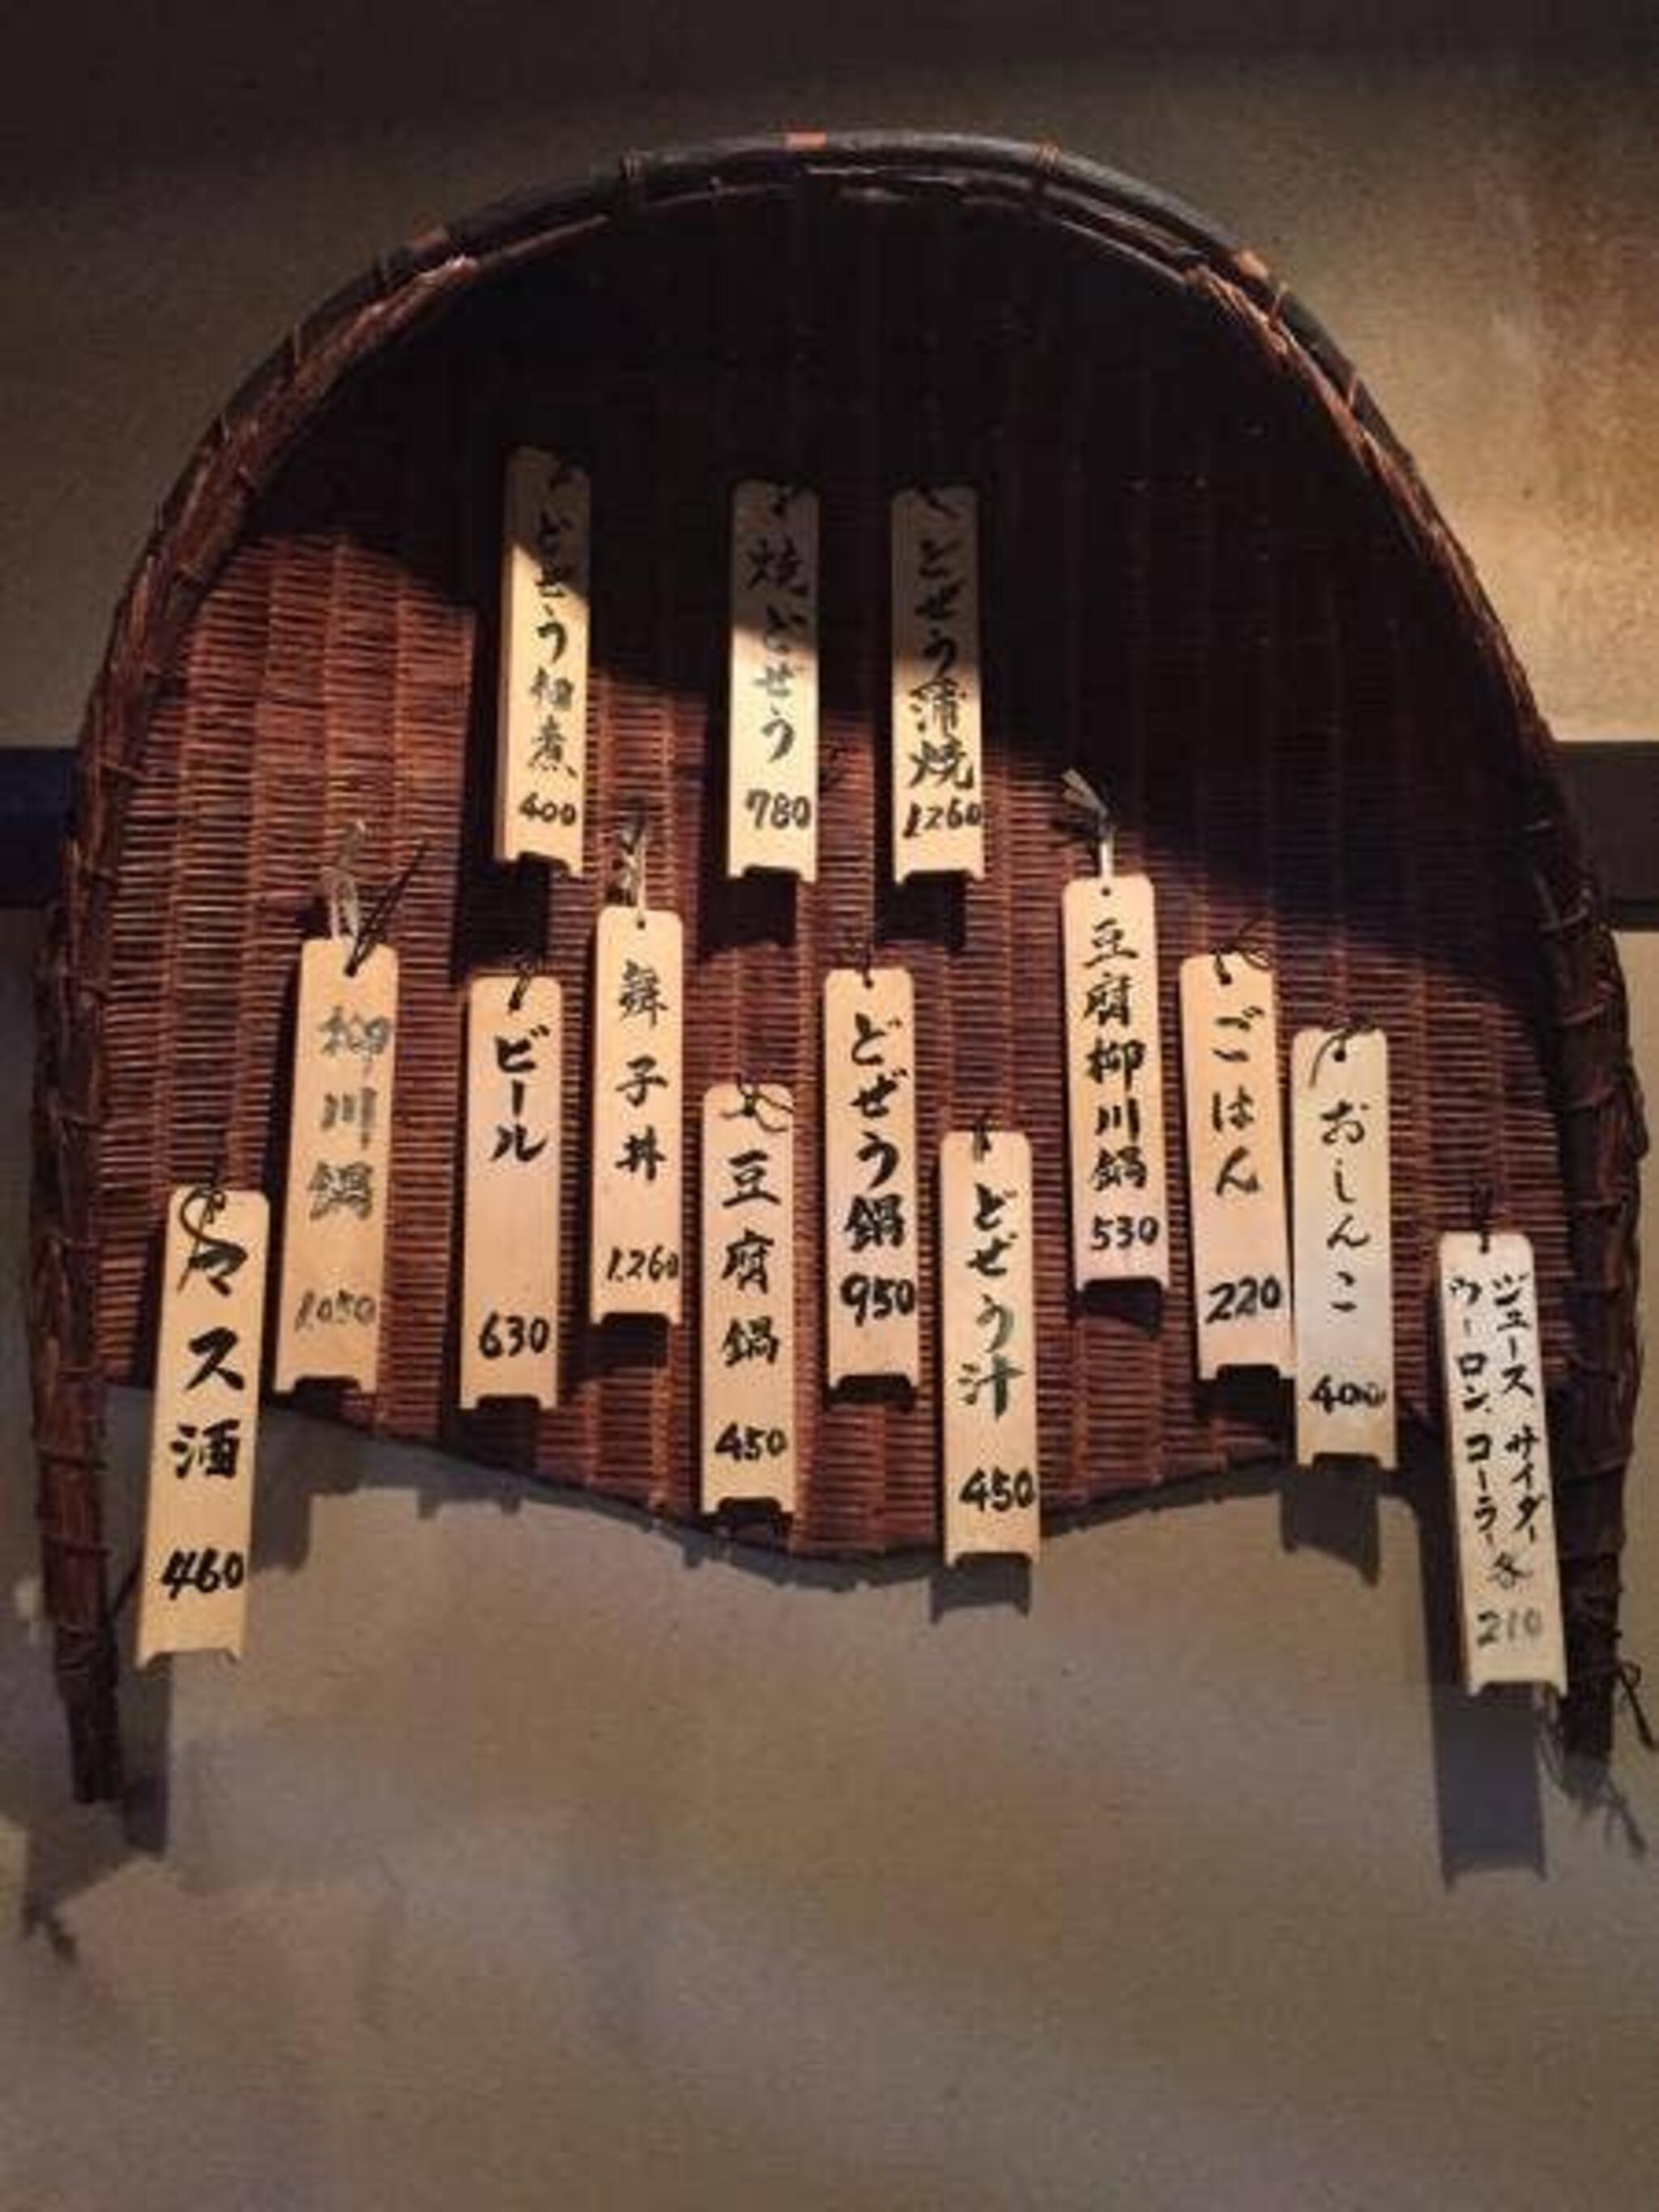 どぜう佃煮
400
焼どぜう
780
どぜう蒲焼
1260
豆腐柳川鍋
530
舞子丼
1.260
柳川鍋
1.050
ビール
630
どぜう鍋
950
ごはん
220
おしんこ
400
豆腐鍋
450
どぜう汁
450
マス酒
460
ジュース サイダー
ウーロン、コーラ 各
210